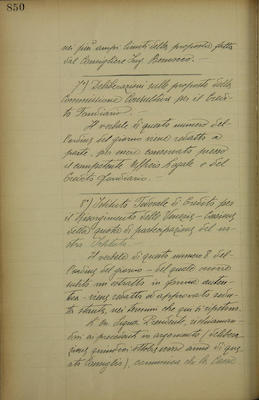 850
nei più ampi limiti della proposta fatta
dal Consigliere Ing.
7°) Deliberazioni sulle proposte della
Commissione Consultiva per il Credi-
to Fondiario.
Il verbale di questo numero del-
l'ordine del giorno viene redatto a
parte, per essere conservato presso
il competente Ufficio Legale e del
Credito Fondiario.
8°) Istituto Federale di Credito per
il Risorgimento delle Venezie -
della quota di partecipazione del no-
stro Istituto.
Il verbale di questo numero 8 del-
l'ordine del giorno - del quale venne
subito un estratto in forma auten-
tica - viene redatto ed approvato sedu-
ta stante, nei termini che qui si ripetono.
Il Sig. Presidente, richiaman-
dosi ai precedenti in argomento (delibera-
zione quindici ottobre anno di que-
sto Consiglio), comunica che la Cassa